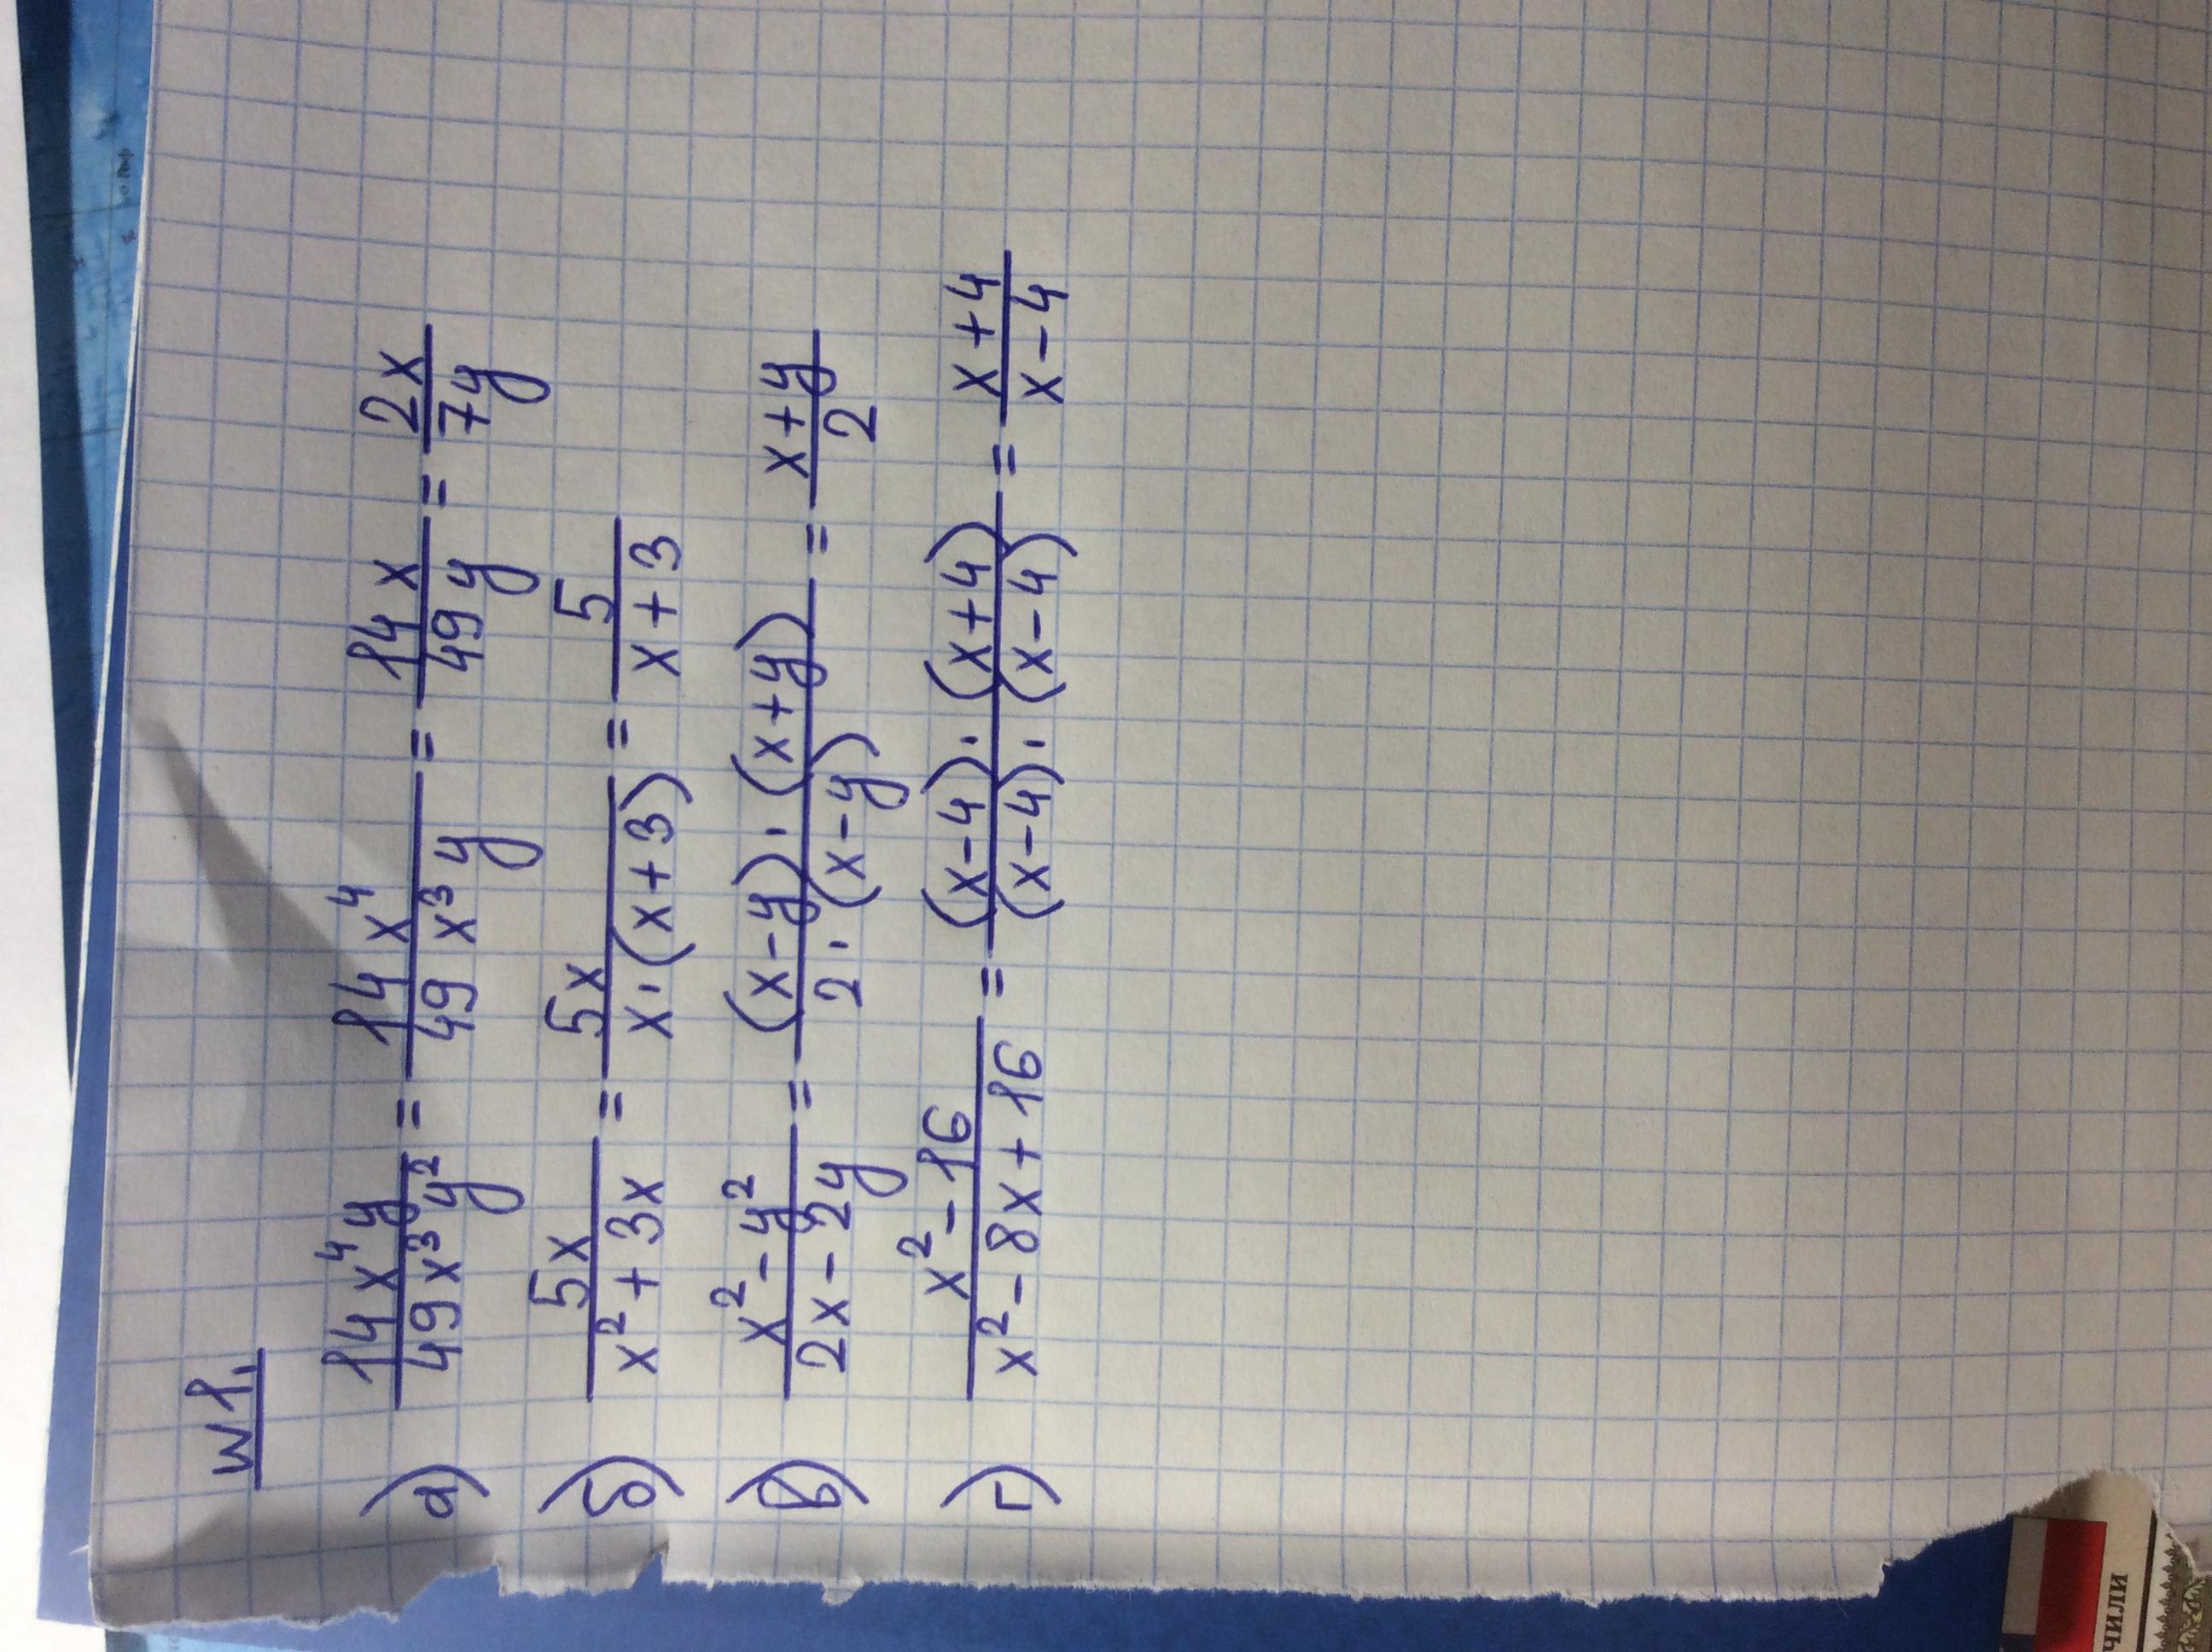 №1.
а) 14x⁴y/49x³y² = 14x⁴/49x³y = 14x/49y = 2x/7y
б) 5x/x²+3x = 5x/x·(x+3) = 5/x+3
в) x²-y²/2x-2y = (x-y)·(x+y)/2·(x-y) = x+y/2
г) x²-16/x²-8x+16 = (x-4)·(x+4)/(x-4)·(x-4) = x+4/x-4